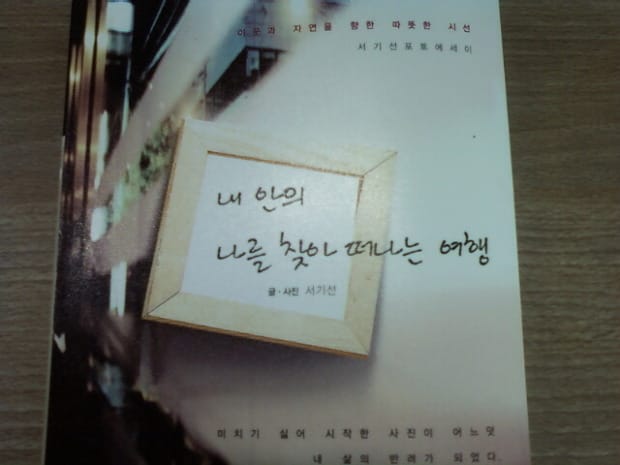 이웃과 자연을 향한 따뜻한 시선
서기선포토에세이
내 안의
나를 찾아 떠나는 여행
글·사진 서기선
미치기 싫어 시작한 사진이 어느덧
내 삶의 반려가 되었다.